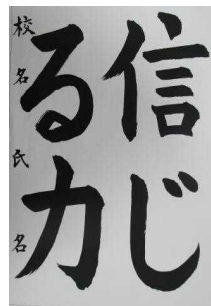 信じ
る力
校名氏名